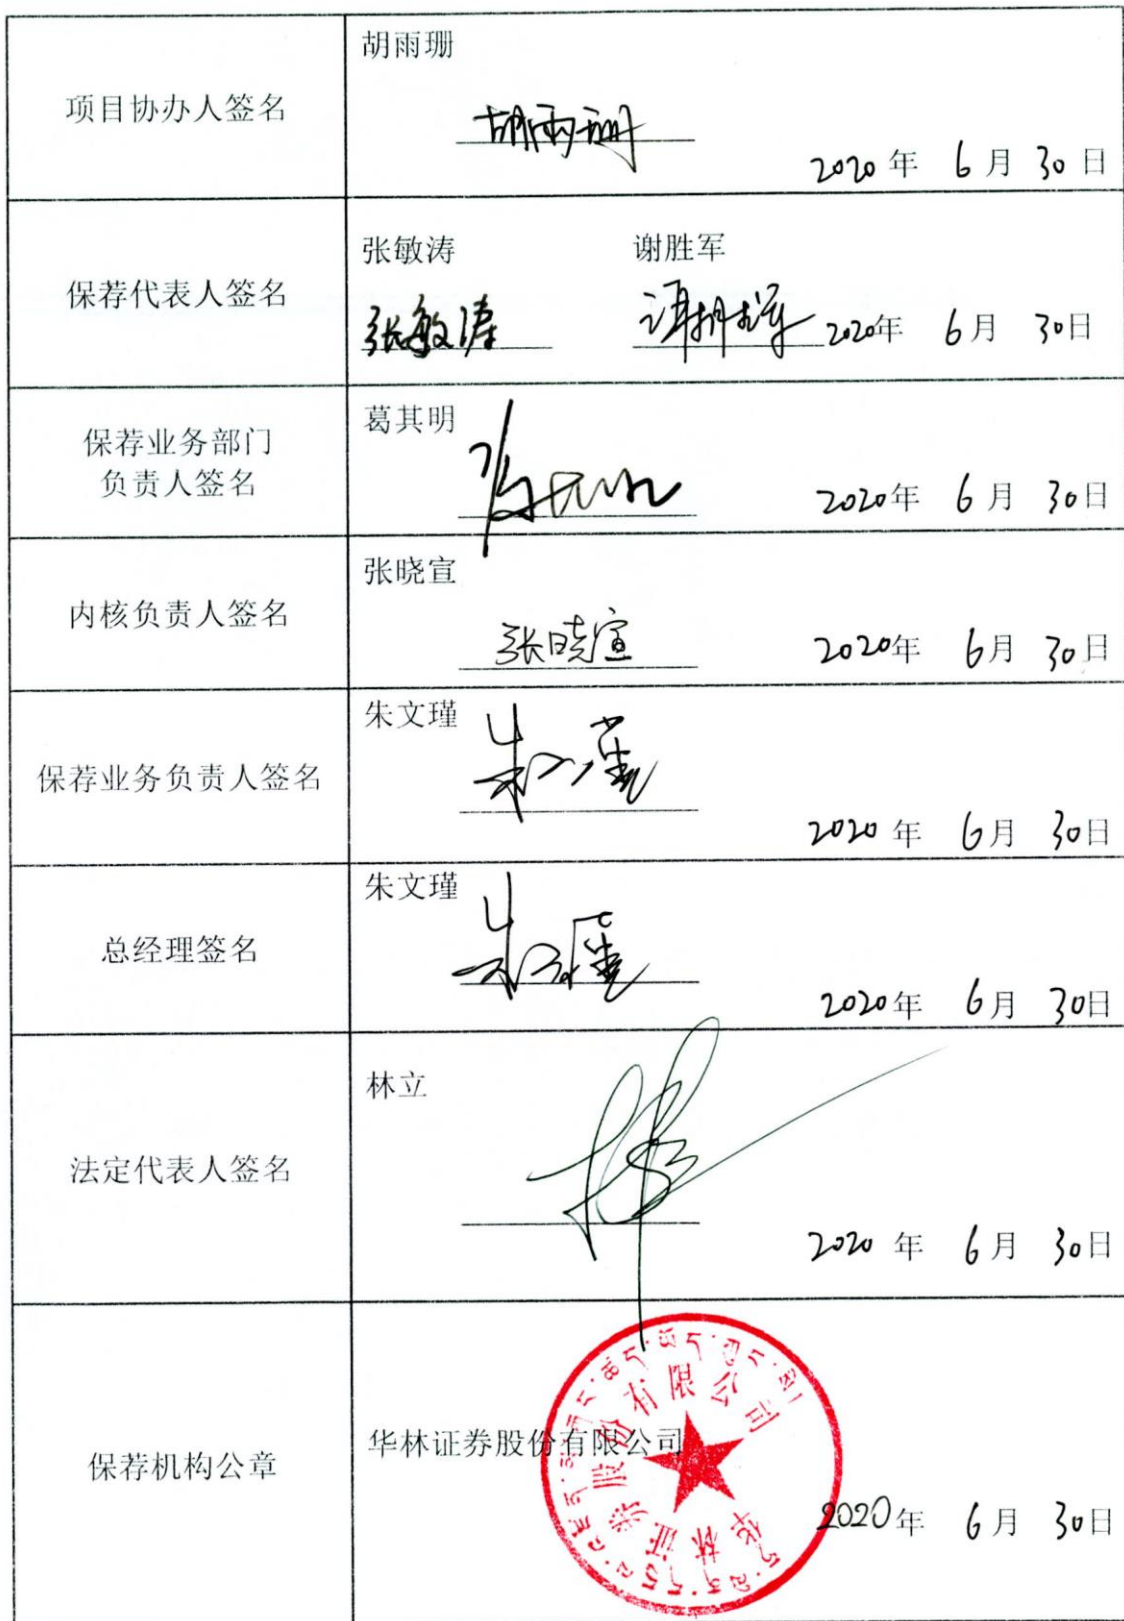 项目协办人签名
胡雨珊
胡雨珊
2020年 6月 30日
保荐代表人签名
张敏涛 谢胜军
张敏涛 谢胜军 2020年 6月 30日
保荐业务部门
负责人签名
葛其明
2020年 6月 30日
内核负责人签名
张晓宣
张晓宣 2020年 6月 30日
保荐业务负责人签名
朱文瑾
朱文瑾
2020年 6月 30日
总经理签名
朱文瑾
朱文瑾
2020年 6月 30日
法定代表人签名
林立
2020年 6月 30日
保荐机构公章
华林证券股份有限公司
华林证券股份有限公司
2020年 6月 30日